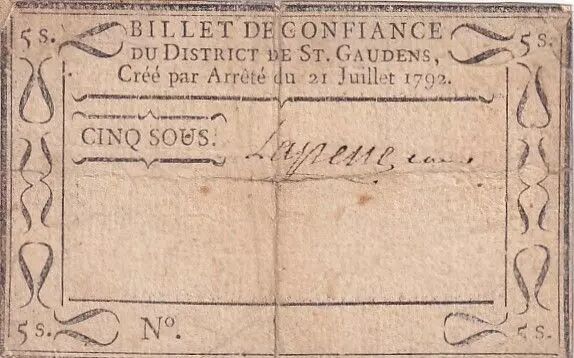 5 s. BILLET DE CONFIANCE 5 s.
DU DISTRICT DE ST. GAUDENS,
Créé par Arrêté du 21 Juillet 1792.
CINQ SOUS. Lapene
5 s. N°. 5 s.